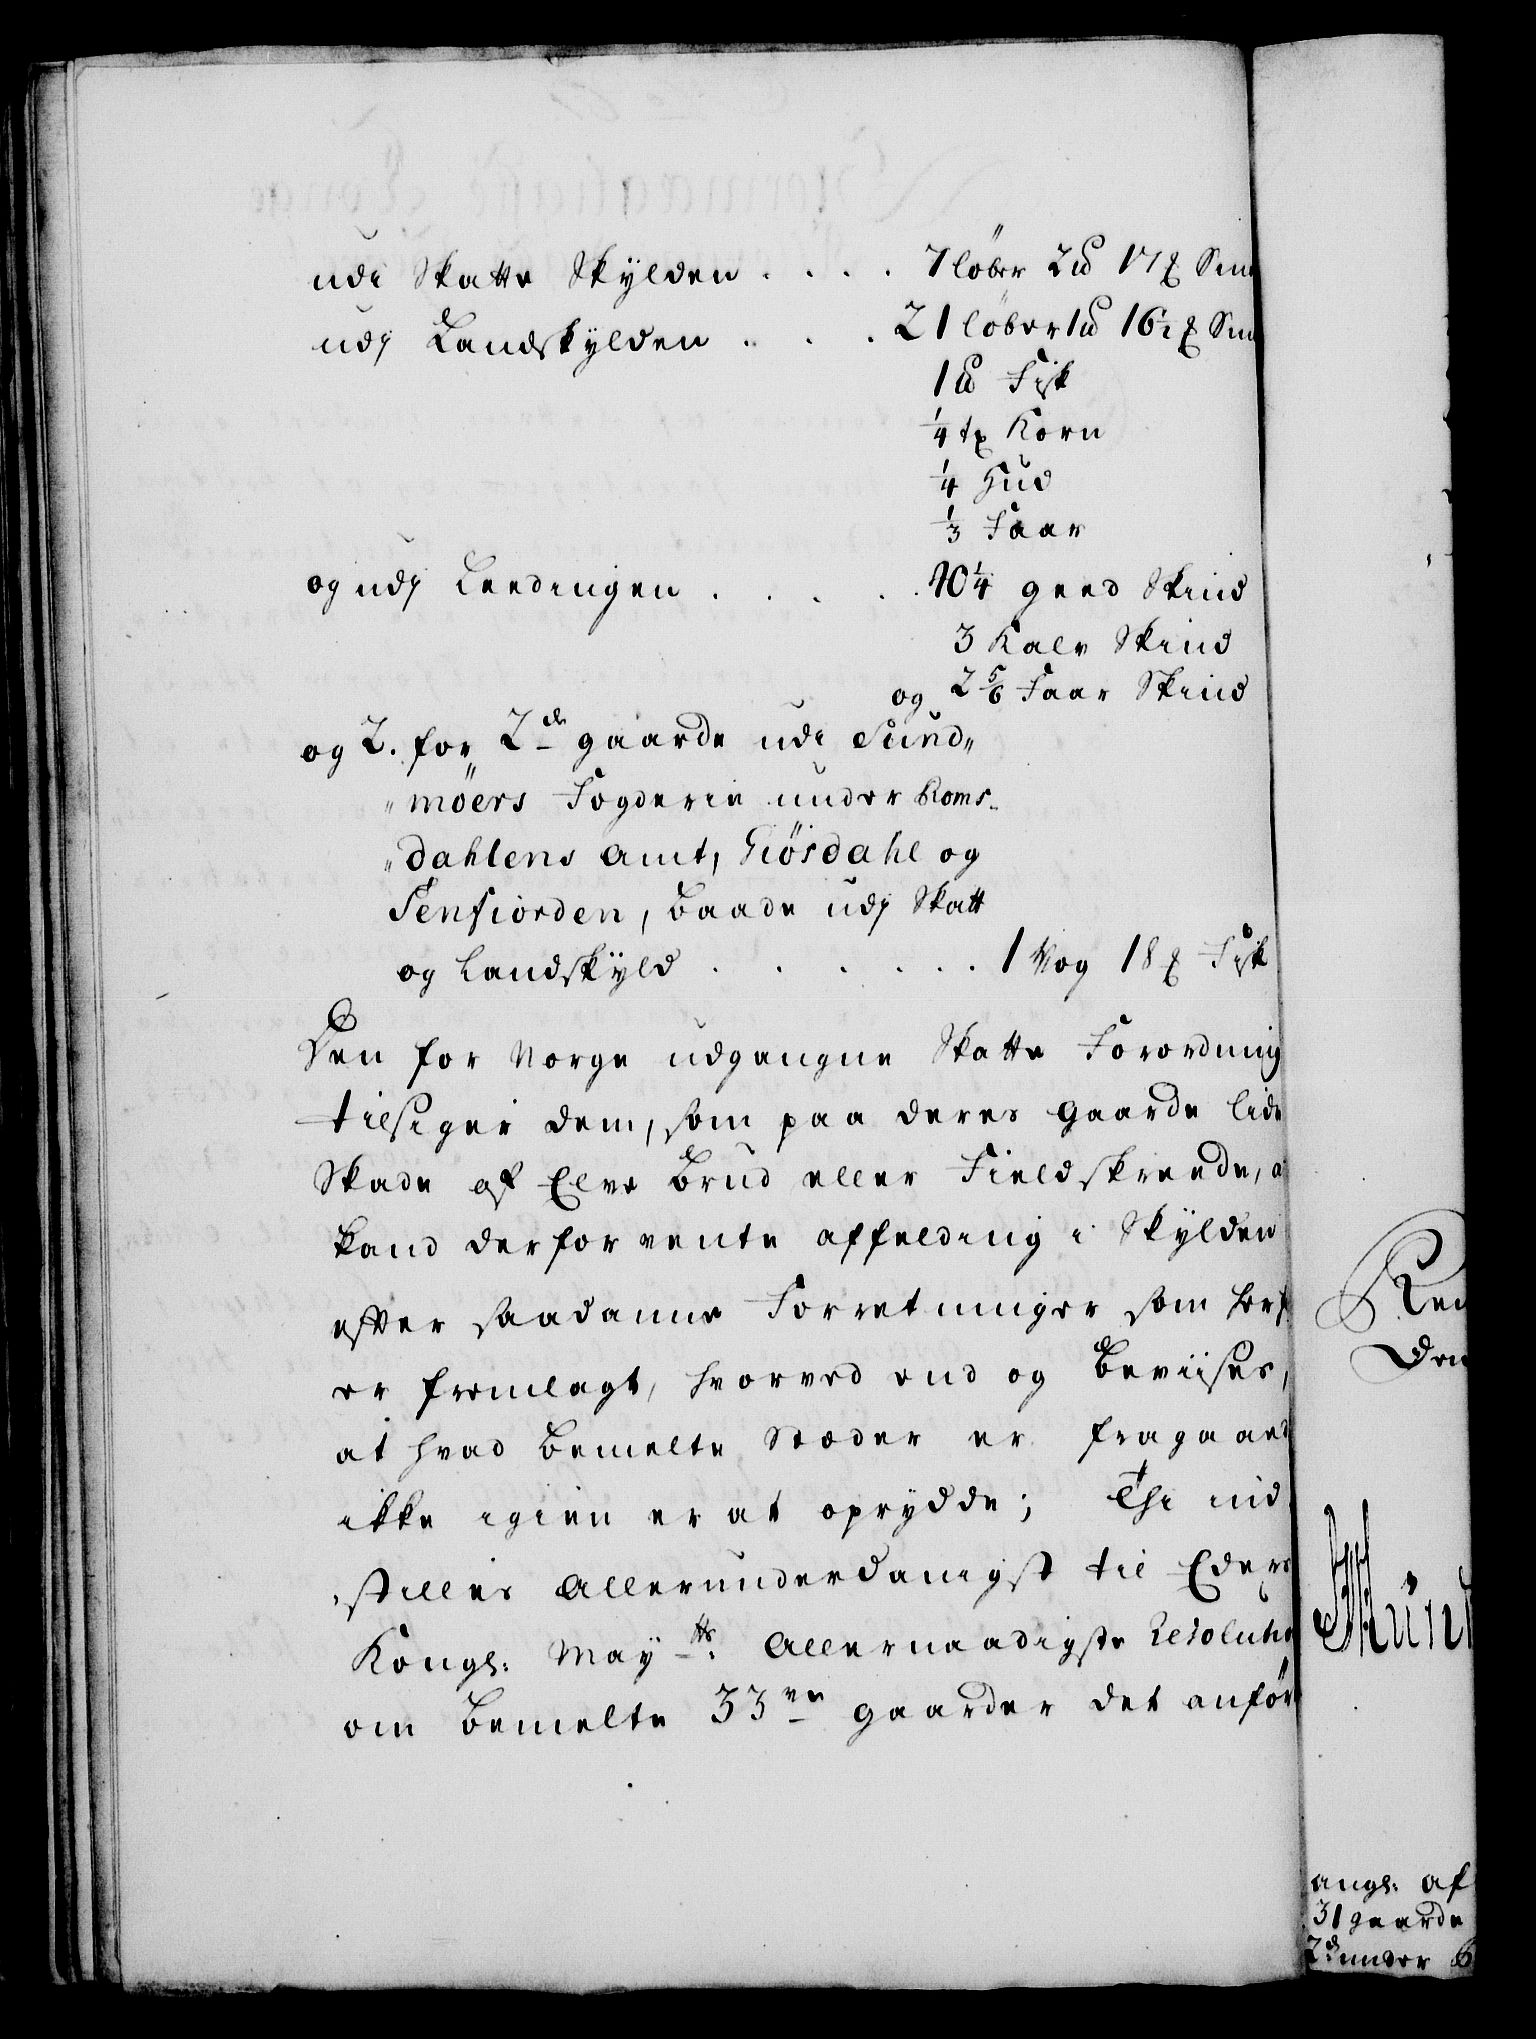 udi Skatte Skylden . . . . 7 löber 2 ℔ 17 ℔
udj Landskylden . . . 21 löber 1 ℔ 16½ ℔
1 ℔ Fisk
¼ tr Korn
¼ Hud
⅓ Faar
og udj Leedingen . . . . . 10¼ geed Skind
3 Kalv Skind
og 2⅚ Faar Skind
og 2. for 2de gaarde udi Sund„
„möers Fogderie under Roms„
„dahlens Amt, Giösdahl og
Fenfiorden, baade udj Skatt
og Landskyld . . . . . . . 1 Wog 18 ℔ Fisk
Den for Norge udgangne Skatte Forordning
tilsiger dem, som paa deres gaarde lide
Skade af Elve Brud eller Fieldskreede, a
kand derfor vente affelding i Skylden
efter saadanne Forretninger som her
er fremlagt, hvorved end og beviises,
at hvad bemelte Stæder er fragaaed
ikke igien er at oprydde; Thi ind
stilles Allerunderdanigst til Eders
Kongl: Mayts: Allernaadigste Resolution
om bemelte 33ve gaarder det anför
Den
angl: af
31 gaarde
2de under